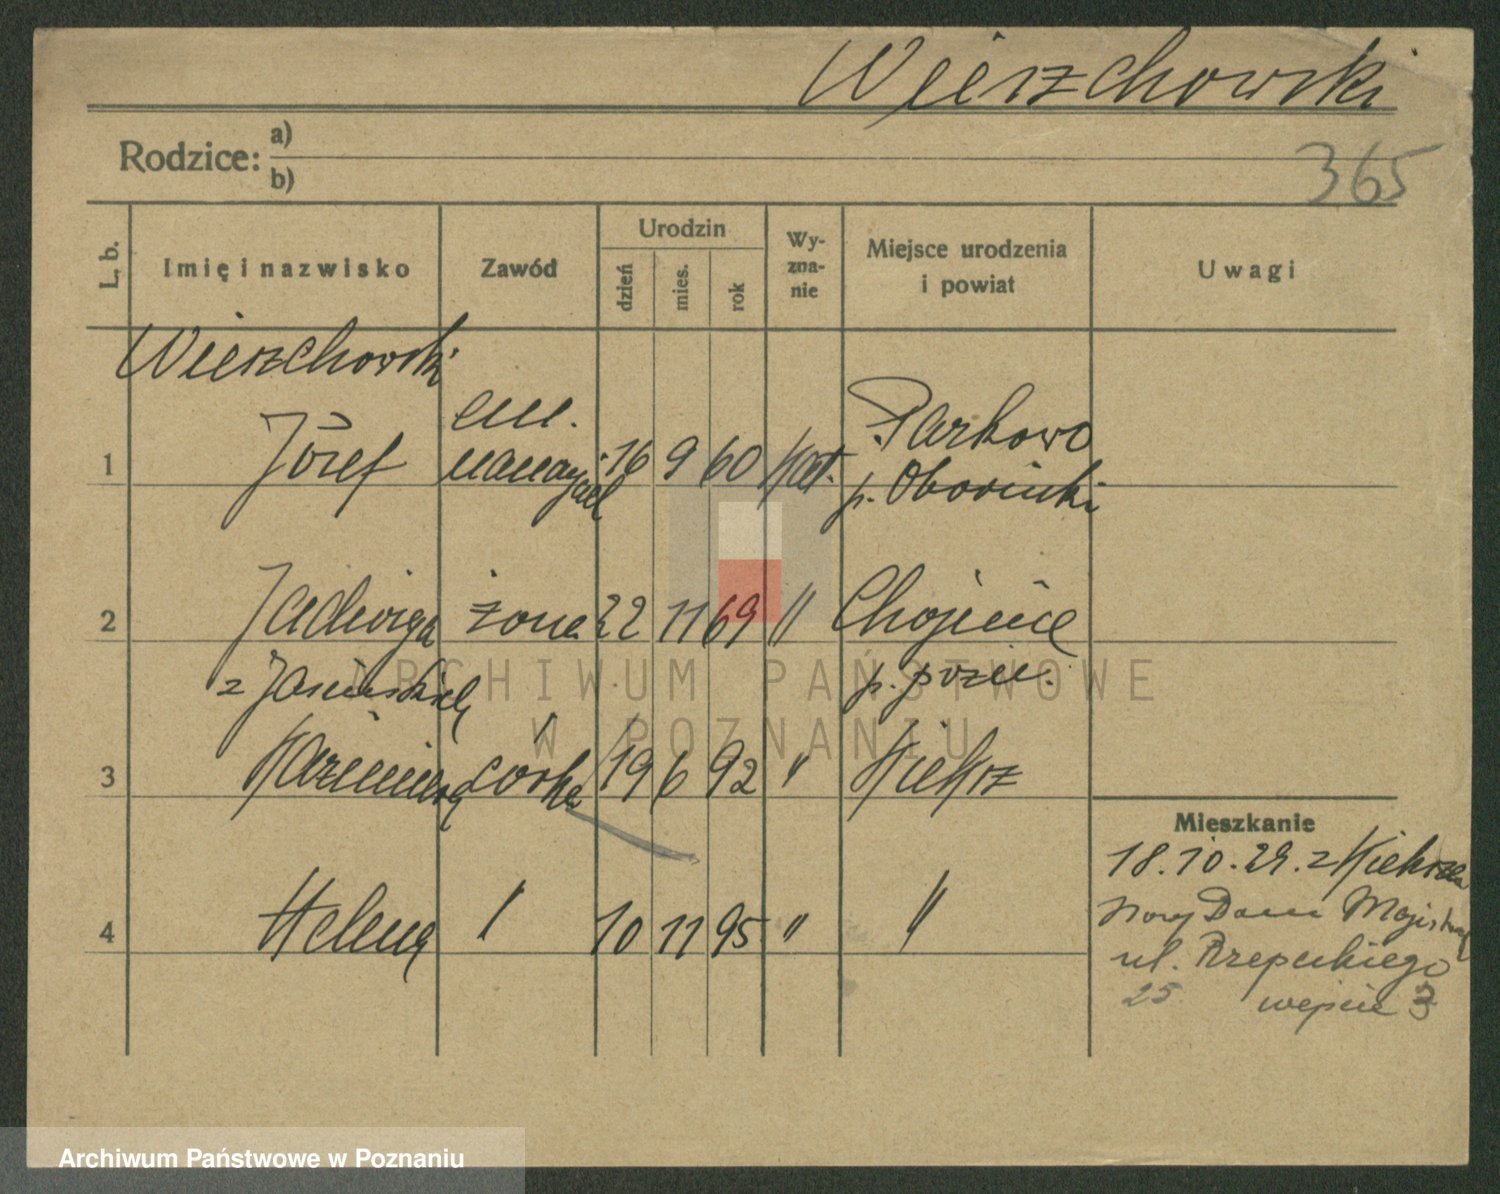 Wierzchowski
365
Rodzice: a)
b)
L. b. Imię i nazwisko Zawód Urodzin dzień mies. rok Wy-zna-nie Miejsce urodzenia i powiat Uwagi
Wierzchowski
1 Józef em. nauczyciel 16 9 60 kat. Parkowo p. Obornicki
2 Jadwiga żona 22 11 69 " Chojnice p. pozn.
z Jasińskich
3 Kazimiera córka 19 6 92 " Kiekrz
4 Helena " 10 11 95 " "
Mieszkanie
18.10.29. z Kiekrza
Nowy Dom
ul. Rzepeckiego
25 wejście 3
ARCHIWUM PAŃSTWOWE
W POZNANIU
Archiwum Państwowe w Poznaniu